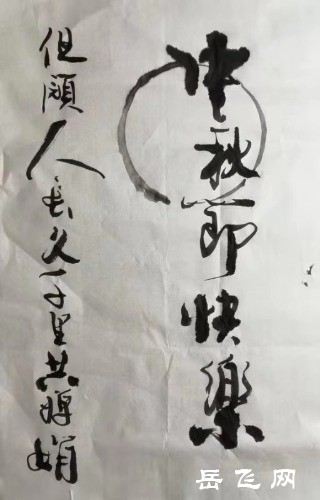 中秋節快樂
但願人長久千里共嬋娟
岳飞网